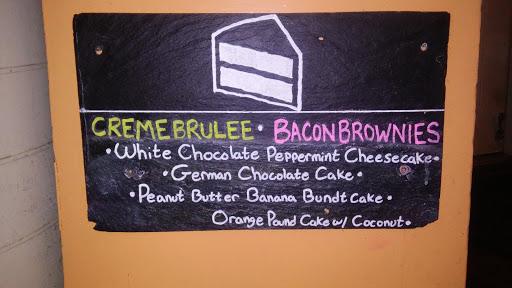 CREME BRULEE • BACON BROWNIES
• White Chocolate Peppermint Cheesecake •
• German Chocolate Cake •
• Peanut Butter Banana Bundt Cake •
Orange Pound Cake w/ Coconut •